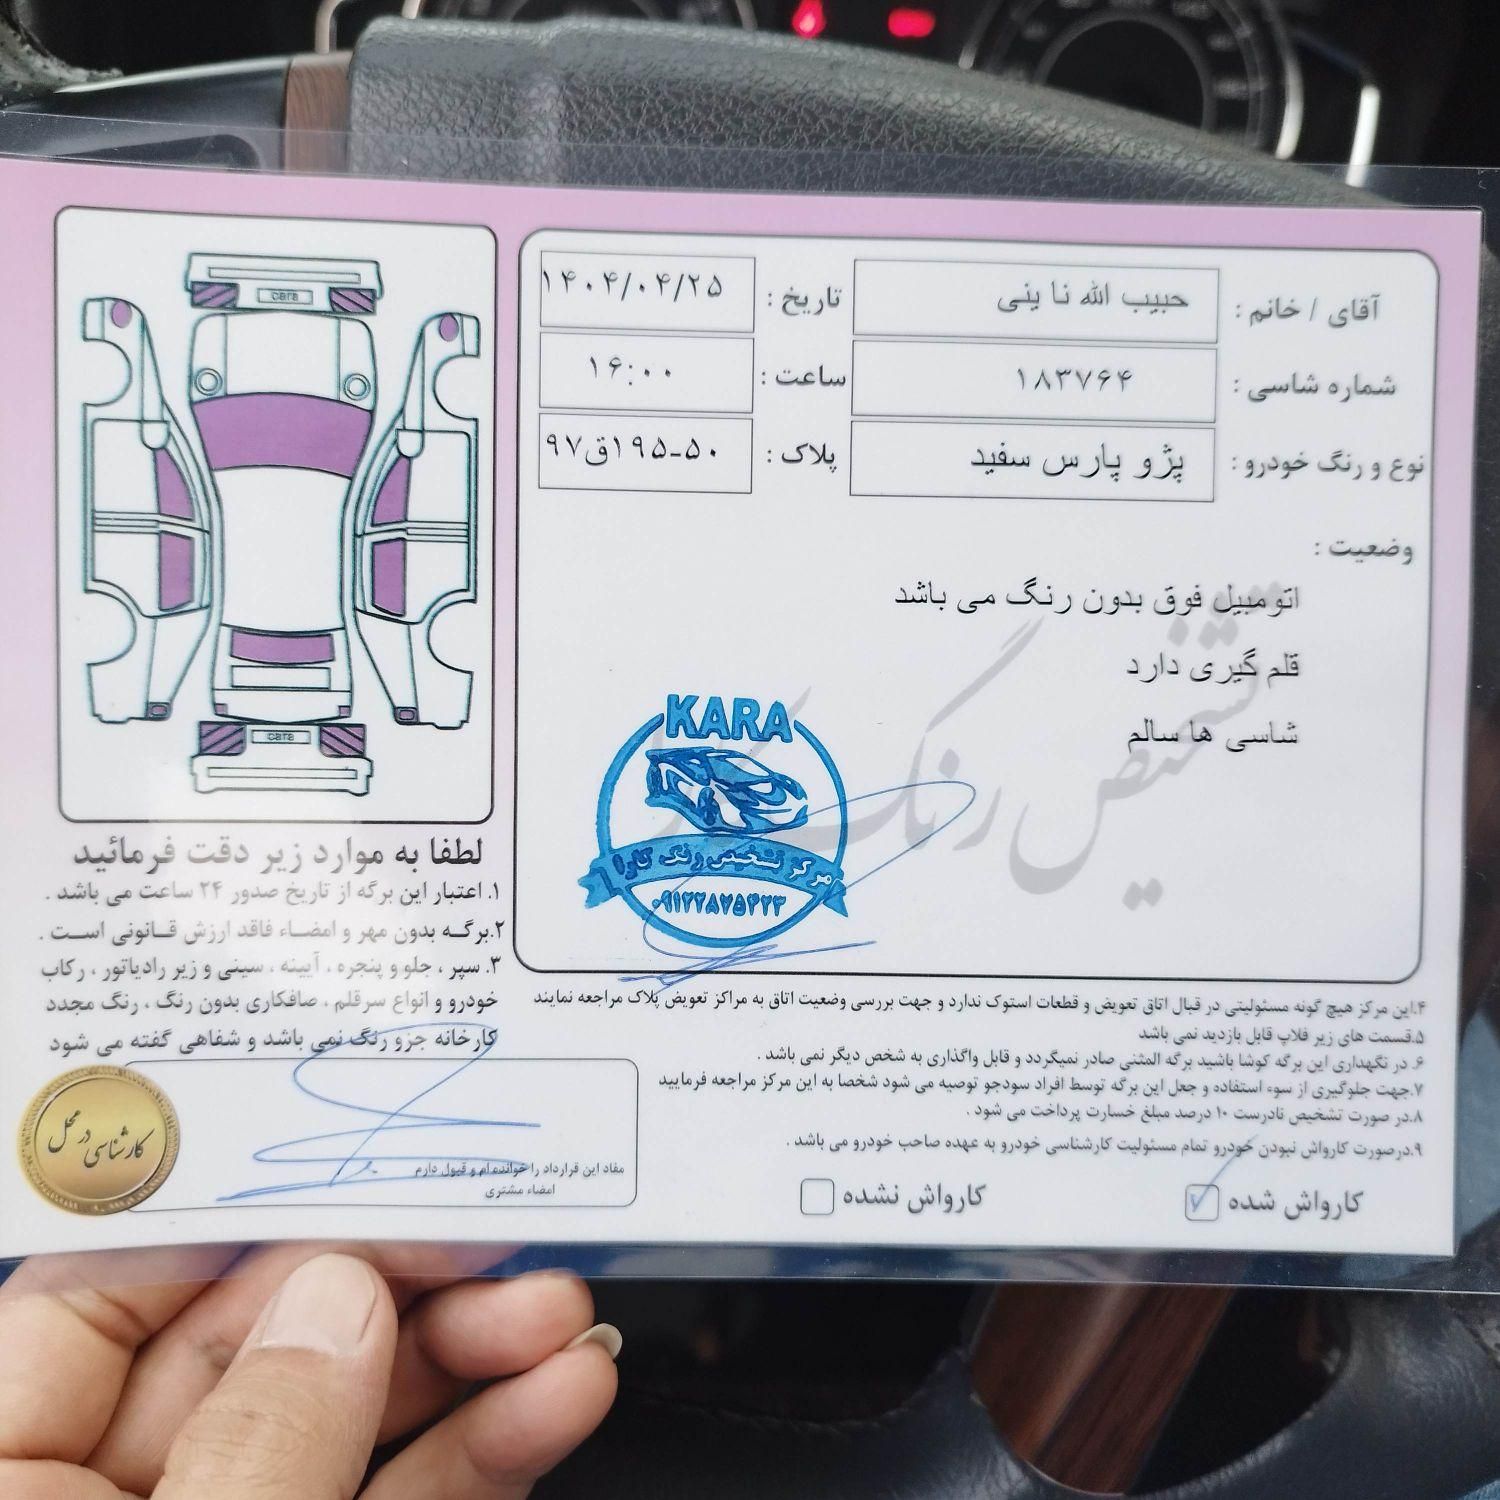 آقای / خانم : حبیب الله نایینی
تاریخ : ۱۴۰۴/۰۴/۲۵
شماره شاسی : ۱۸۳۷۶۴
ساعت : ۱۶:۰۰
نوع و رنگ خودرو : پژو پارس سفید
پلاک : ۵۰-۱۹۵ق۹۷
وضعیت :
اتومبیل فوق بدون رنگ می باشد
قلم گیری دارد
شاسی ها سالم
تشخیص رنگ کارا
KARA
مرکز تشخیص رنگ کارا
۰۹۱۲۲۸۲۵۴۲۳
cara
cara
لطفا به موارد زیر دقت فرمائید
۱. اعتبار این برگه از تاریخ صدور ۲۴ ساعت می باشد .
۲.برگه بدون مهر و امضاء فاقد ارزش قانونی است .
۳. سپر ، جلو و پنجره ، آیینه ، سینی و زیر رادیاتور ، رکاب
خودرو و انواع سرقلم ، صافکاری بدون رنگ ، رنگ مجدد
کارخانه جزو رنگ نمی باشد و شفاهی گفته می شود
۴.این مرکز هیچ گونه مسئولیتی در قبال اتاق تعویض و قطعات استوک ندارد و جهت بررسی وضعیت اتاق به مراکز تعویض پلاک مراجعه نمایند
۵.قسمت های زیر فلاپ قابل بازدید نمی باشد
۶. در نگهداری این برگه کوشا باشید برگه المثنی صادر نمیگردد و قابل واگذاری به شخص دیگر نمی باشد .
۷.جهت جلوگیری از سوء استفاده و جعل این برگه توسط افراد سودجو توصیه می شود شخصا به این مرکز مراجعه فرمایید
۸.در صورت تشخیص نادرست ۱۰ درصد مبلغ خسارت پرداخت می شود .
۹.درصورت کارواش نبودن خودرو تمام مسئولیت کارشناسی خودرو به عهده صاحب خودرو می باشد .
کارواش شده
کارواش نشده
مفاد این قرارداد را خوانده ام و قبول دارم
امضاء مشتری
کارشناسی در محل